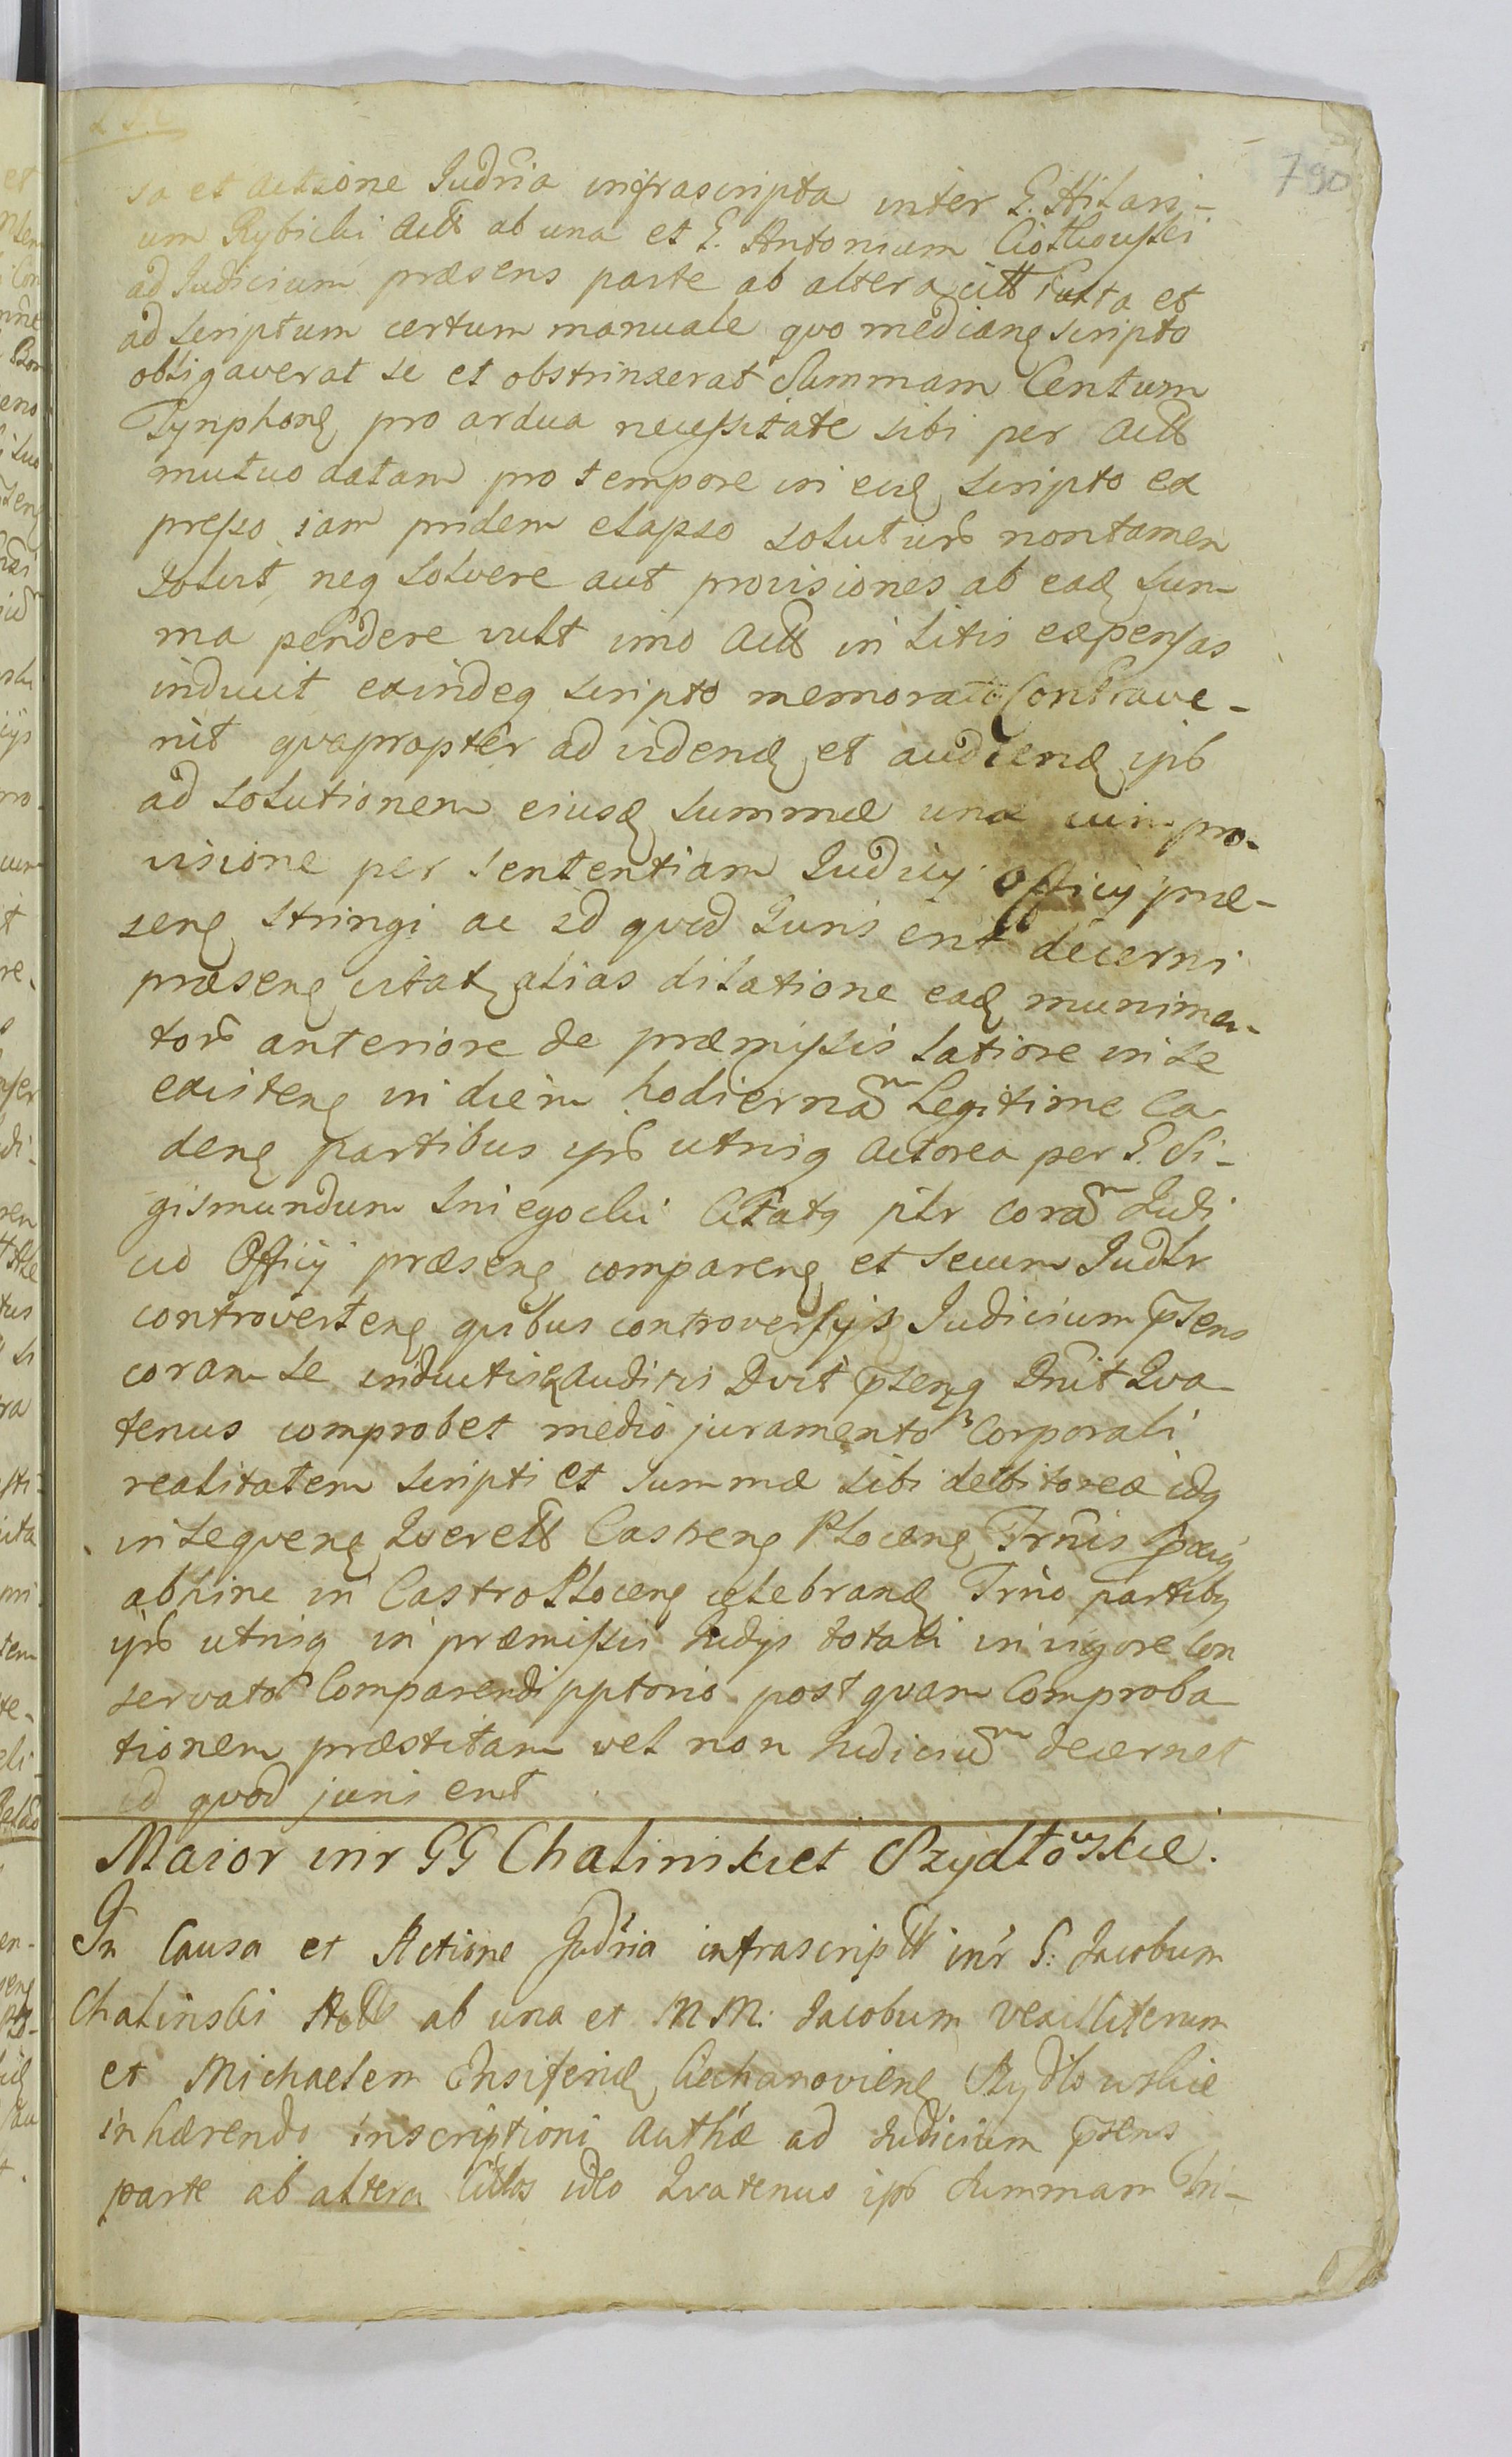 790
sa et actione Judria infrascripta inter G. Hilari-
um Rybicki Actt ab una et G. Antonium Ciółkowski
ad Judicium præsens parte ab altera citt iuxta et
ad scriptum certum manuale quo median scripto
obligaverat se et obstrinxerat Summam Centum
Tynphon pro ardua necessitate sibi per Actt
mutuo datam pro tempore in eius scripto ex
presso iam pridem elapso soluturs non tamen
soluit, neq solvere aut provisiones ab ead sum
ma pendere vult imo Actt in litis expensas
induit exindeq scripto memorato Contrave-
nit quapropter ad vidend et audiend ips
ad solutionem eiusd summæ una cum pro-
visione per sententiam Judicy Officy præ-
sen stringi ac id quod Juris erit decerni
præsen citat alias dilatione ead munimen-
tors anteriore de præmissis latiore in se
existen in diem hodiernam Legitime Ca
den partibus ips utrisq actorea per G. Si-
gismundum Sniegocki Citatq pltr coram Judi
cio Officy præsen comparen et secum Judltr
controverten quibus controversys Judicium psens
coram se inductis auditis Dvit psenq Dnit Qva
tenus comprobet medio juramento Corporali
realitatem scripti et summæ sibi debitoreæ idq
in seqven Qverell Castren Plocen Trnis
abhinc in Castro Plocen celebrand Trno partibq
ips utrisq in præmissis Judys totali in vigore Con
servato Comparendi pptorio post quam Comproba
tionem præstitam vel non Judicium decernet
id quod juris erit
Maior inr GG Chalinski et Szydłowskie.
In Causa et Actione Judria infrascriptt in'r G: Jacobum
Chalinski Actt ab una et MM: Jacobum Vexilliferum
et Michaelem Ensiferum Ciechanovien Szydłowskie
inhærendo inscriptioni authæ ad Judicium psens
parte ab altera Cittos ideo Qvatenus ips Summam Tri-